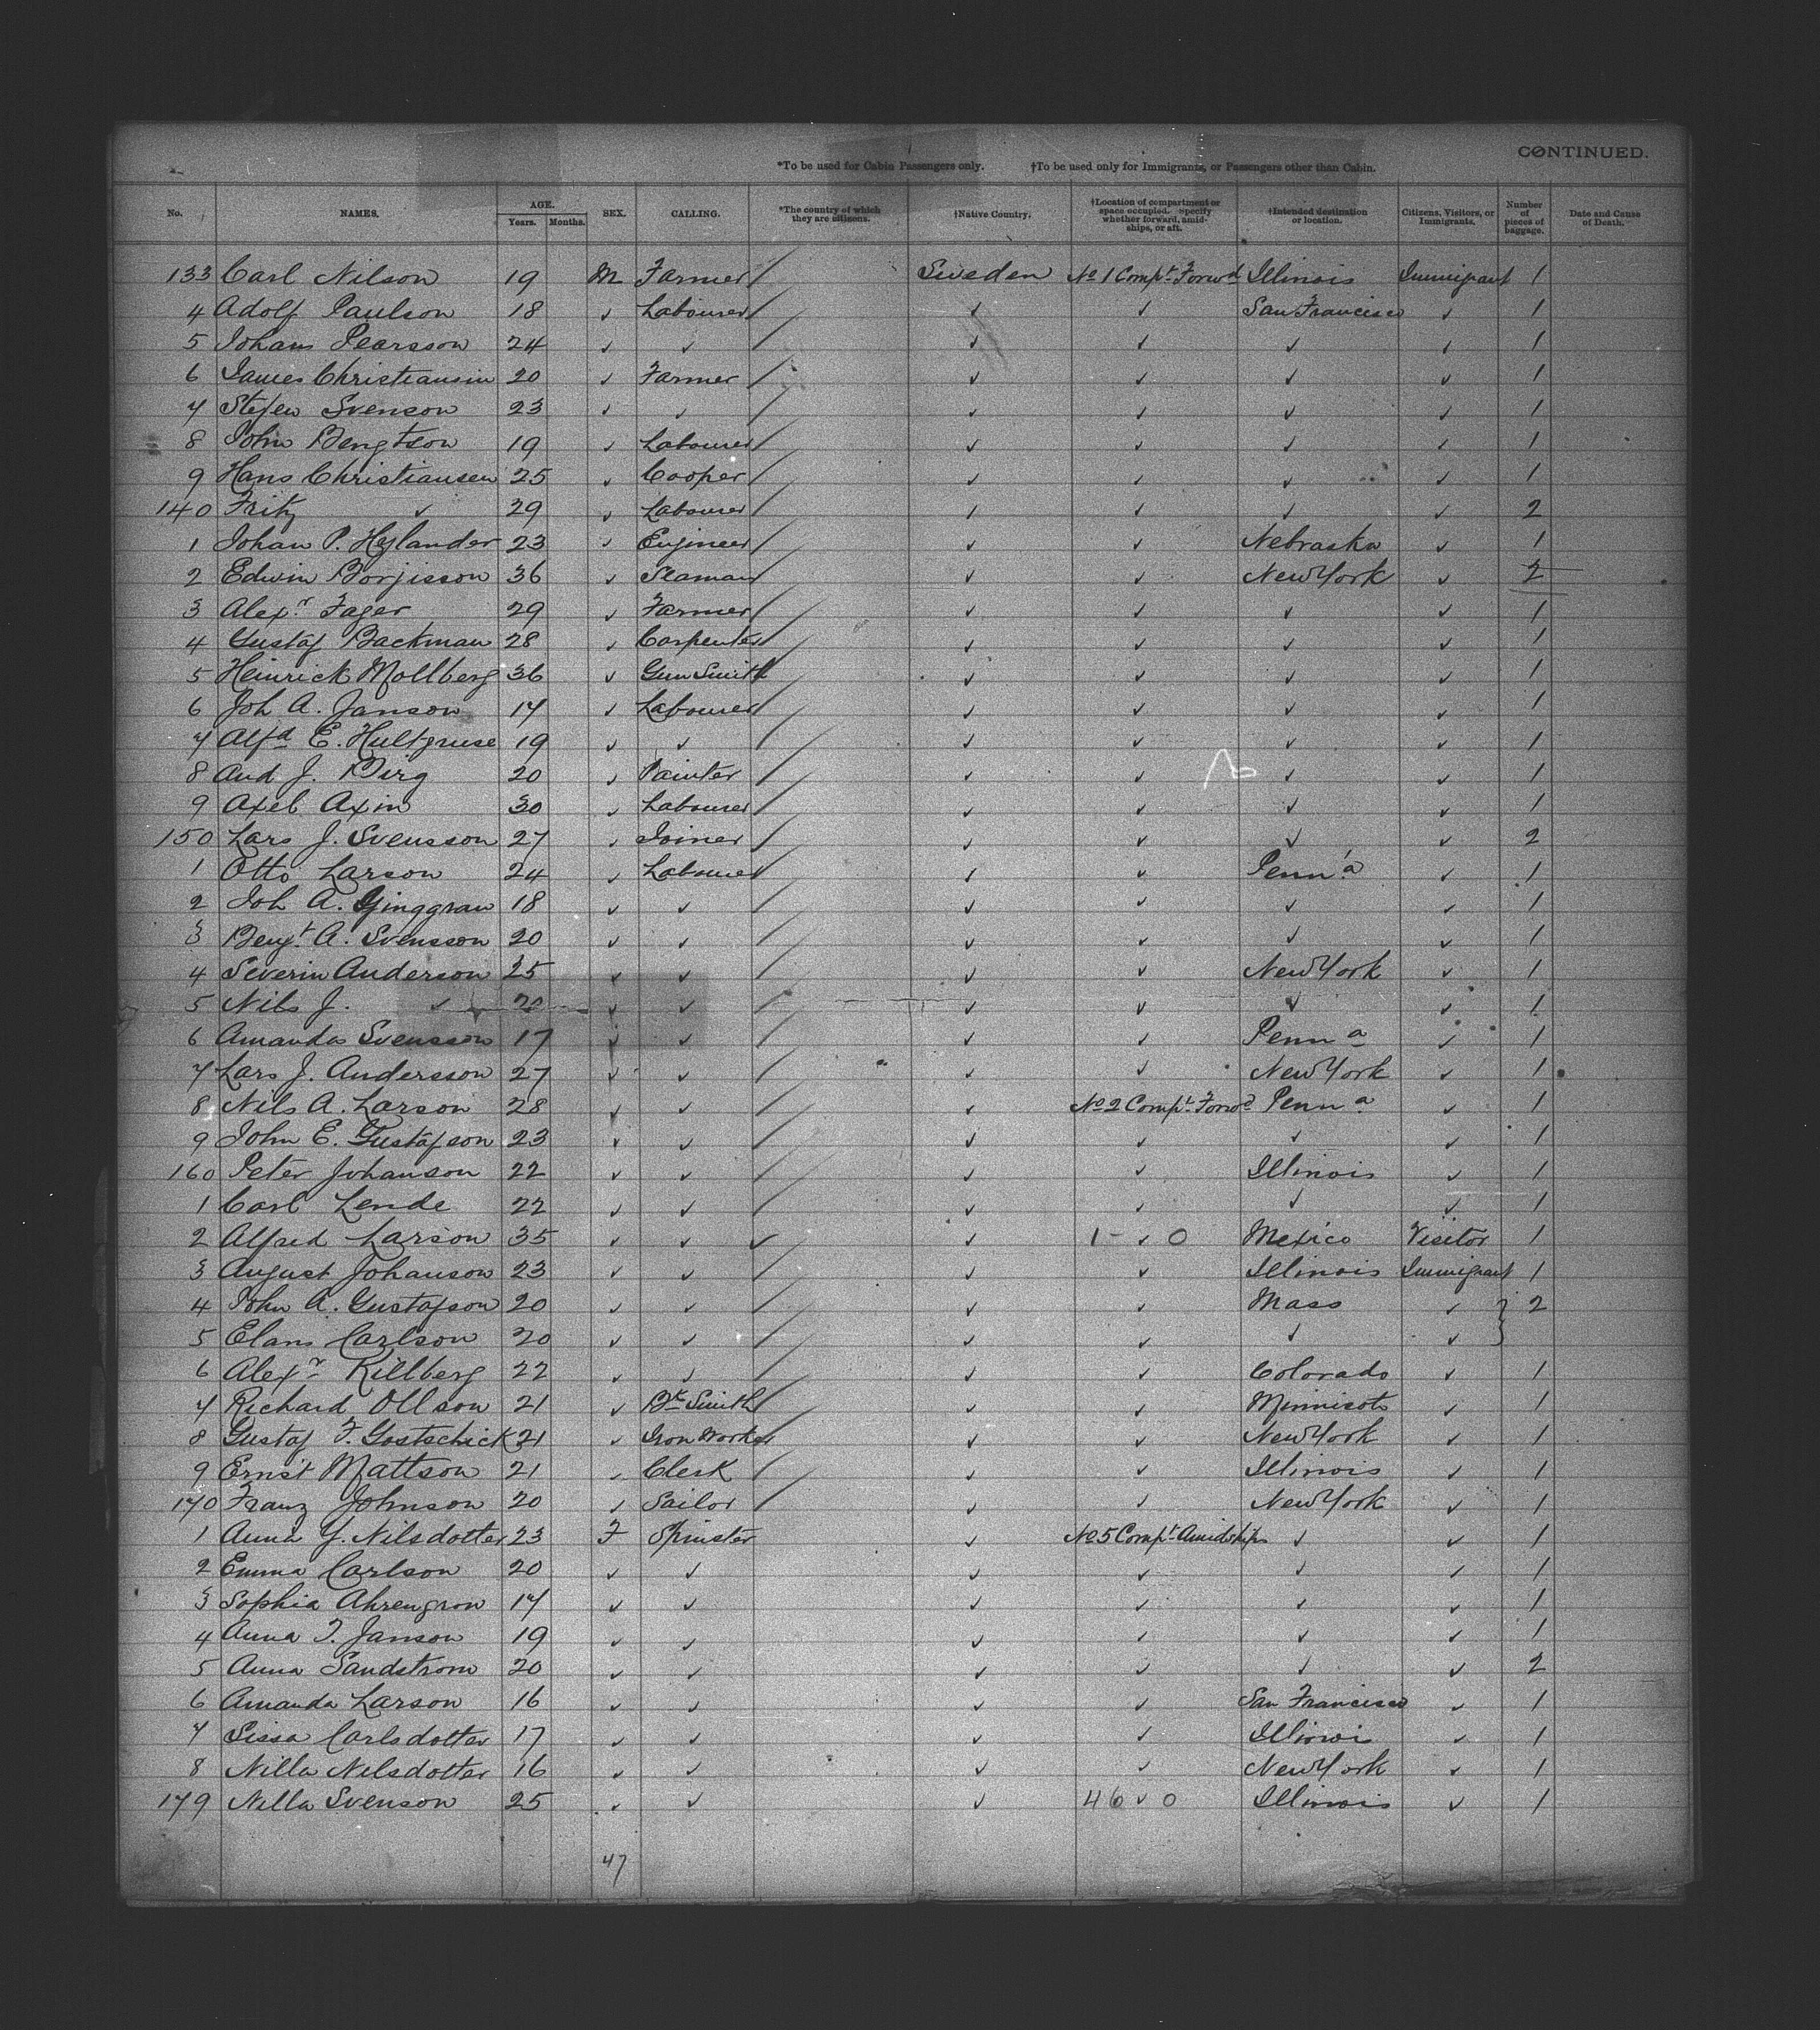 CONTINUED.
*To be used for Cabin Passengers only. †To be used only for Immigrants, or Passengers other than Cabin.
No. NAMES. AGE. Years. Months. SEX. CALLING. *The country of which they are citizens. †Native Country. †Location of compartment or space occupied. Specify whether forward, amidships, or aft. †Intended destination or location. Citizens, Visitors, or Immigrants. Number of pieces of baggage. Date and Cause of Death.
133 Carl Nilson 19 M Farmer / Sweden No 1 Compt. Forwd Illinois Immigrant 1
4 Adolf Paulson 18 ✓ Labourer / ✓ ✓ San Francisco ✓ 1
5 Johans Pearsson 24 ✓ ✓ / ✓ ✓ ✓ ✓ 1
6 James Christiansin 20 ✓ Farmer / ✓ ✓ ✓ ✓ 1
7 Stefen Svenson 23 ✓ ✓ / ✓ ✓ ✓ ✓ 1
8 John Bengtson 19 ✓ Labourer / ✓ ✓ ✓ ✓ 1
9 Hans Christiansen 25 ✓ Cooper / ✓ ✓ ✓ ✓ 1
140 Fritz ✓ 29 ✓ Labourer / ✓ ✓ ✓ ✓ 2
1 Johan P. Heylander 23 ✓ Engineer / ✓ ✓ Nebraska ✓ 1
2 Edwin Borjisson 36 ✓ Seaman / ✓ ✓ New York ✓ 2
3 Alexr Fager 29 ✓ Farmer / ✓ ✓ ✓ ✓ 1
4 Gustaf Backman 28 ✓ Carpenter / ✓ ✓ ✓ ✓ 1
5 Heinrick Mollberg 36 ✓ Gun Smith / ✓ ✓ ✓ ✓ 1
6 Joh A. Janson 17 ✓ Labourer / ✓ ✓ ✓ ✓ 1
7 Alfd E. Hultgruse 19 ✓ ✓ / ✓ ✓ ✓ ✓ 1
8 And J. Birg 20 ✓ Painter / ✓ ✓ ✓ ✓ 1
9 Axel Axin 30 ✓ Labourer / ✓ ✓ ✓ ✓ 1
150 Lars J. Svensson 27 ✓ Joiner / ✓ ✓ ✓ ✓ 2
1 Otto Larson 24 ✓ Labourer / ✓ ✓ Penn'a ✓ 1
2 Joh A. Ginggraw 18 ✓ ✓ / ✓ ✓ ✓ ✓ 1
3 Bengt. A. Svensson 20 ✓ ✓ / ✓ ✓ ✓ ✓ 1
4 Severin Anderson 25 ✓ ✓ / ✓ ✓ New York ✓ 1
5 Nils J. ✓ 20 ✓ ✓ / ✓ ✓ ✓ ✓ 1
6 Amanda Svensson 17 ✓ ✓ / ✓ ✓ Penna ✓ 1
7 Lars J. Andersson 27 ✓ ✓ / ✓ ✓ New York ✓ 1
8 Nils A. Larson 28 ✓ ✓ / ✓ No 2 Compt. Forwd Penna ✓ 1
9 John E. Gustafson 23 ✓ ✓ / ✓ ✓ ✓ ✓ 1
160 Peter Johanson 22 ✓ ✓ / ✓ ✓ Illinois ✓ 1
1 Carl Lende 22 ✓ ✓ / ✓ ✓ ✓ ✓ 1
2 Alfred Larson 35 ✓ ✓ ✓ ✓ 1 - ✓ 0 Mexico Visitor 1
3 August Johanson 23 ✓ ✓ / ✓ ✓ Illinois Immigrant 1
4 John A. Gustafson 20 ✓ ✓ / ✓ ✓ Mass ✓ } 2
5 Elans Carlson 20 ✓ ✓ / ✓ ✓ ✓ ✓
6 Alexr Killberg 22 ✓ ✓ / ✓ ✓ Colorado ✓ 1
7 Richard Ollson 21 ✓ Bk Smith / ✓ ✓ Minnisota ✓ 1
8 Gustaf F. Gostschick 21 ✓ Iron Worker / ✓ ✓ New York ✓ 1
9 Ernst Mattson 21 ✓ Clerk / ✓ ✓ Illinois ✓ 1
170 Franz Johnson 20 ✓ Sailor / ✓ ✓ New York ✓ 1
1 Anna Y. Nilsdotter 23 F Spinster ✓ No 5 Compt. Amidships ✓ ✓ 1
2 Emma Carlson 20 ✓ ✓ ✓ ✓ ✓ ✓ 1
3 Sophia Ahrengron 17 ✓ ✓ ✓ ✓ ✓ ✓ 1
4 Anna T. Janson 19 ✓ ✓ ✓ ✓ ✓ ✓ 1
5 Anna Sandstrom 20 ✓ ✓ ✓ ✓ ✓ ✓ 2
6 Amanda Larson 16 ✓ ✓ ✓ ✓ San Francisco ✓ 1
7 Sissa Carlsdotter 17 ✓ ✓ ✓ ✓ Illinois ✓ 1
8 Nilla Nilsdotter 16 ✓ ✓ ✓ ✓ New York ✓ 1
179 Nilla Svenson 25 ✓ ✓ ✓ 46 ✓ 0 Illinois ✓ 1
47